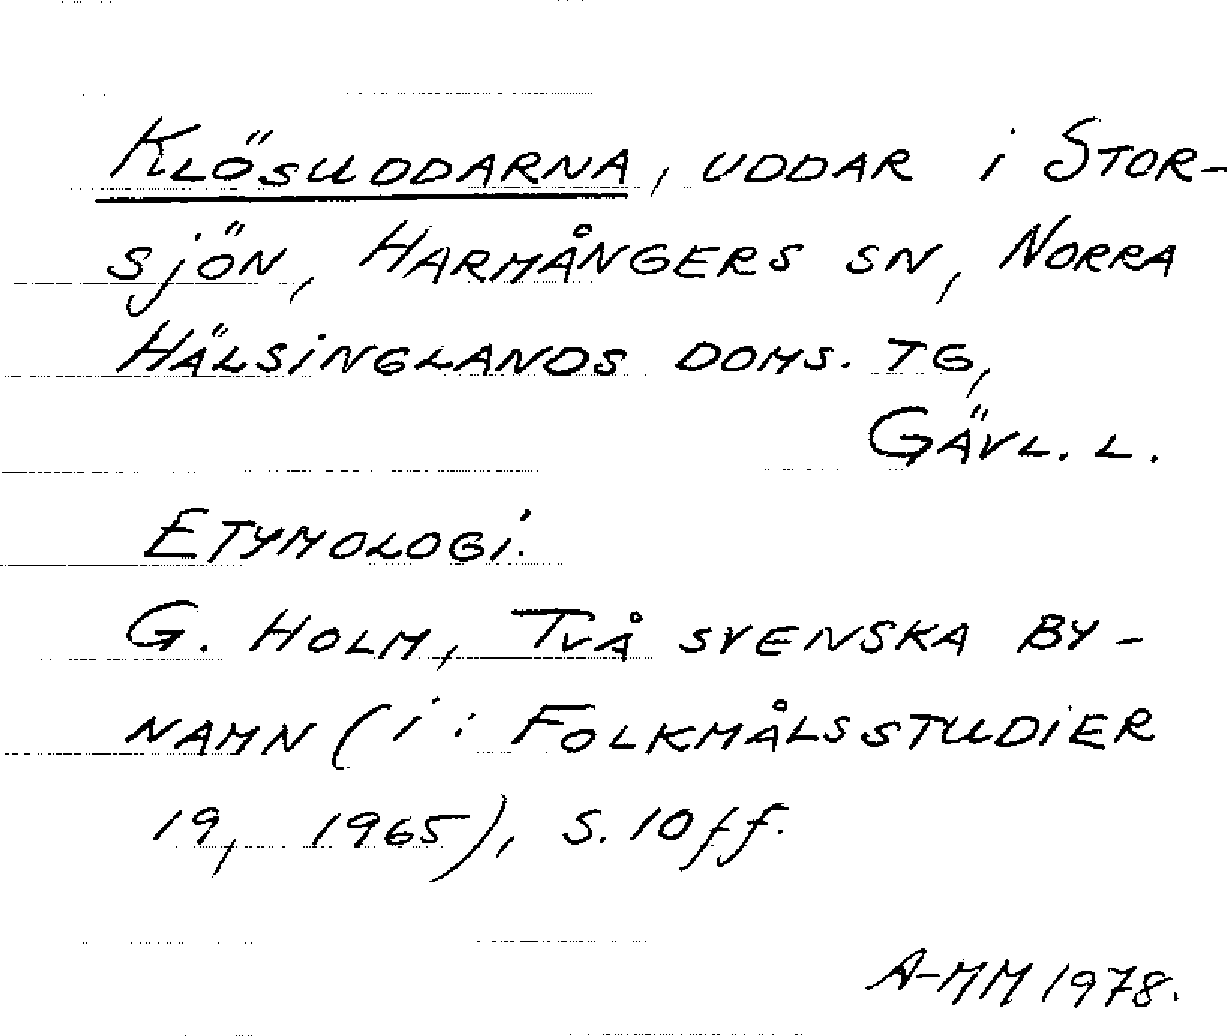 KLÖSUDDARNA, UDDAR i STOR-
SJÖN, HARMÅNGERS SN, NORRA
HÄLSINGLANDS DOMS. TG,
GÄVL. L.
ETYMOLOGI.
G. HOLM, TVÅ SVENSKA BY-
NAMN (i: FOLKMÅLSSTUDIER
19, 1965), S. 10 ff.
A-MM 1978.